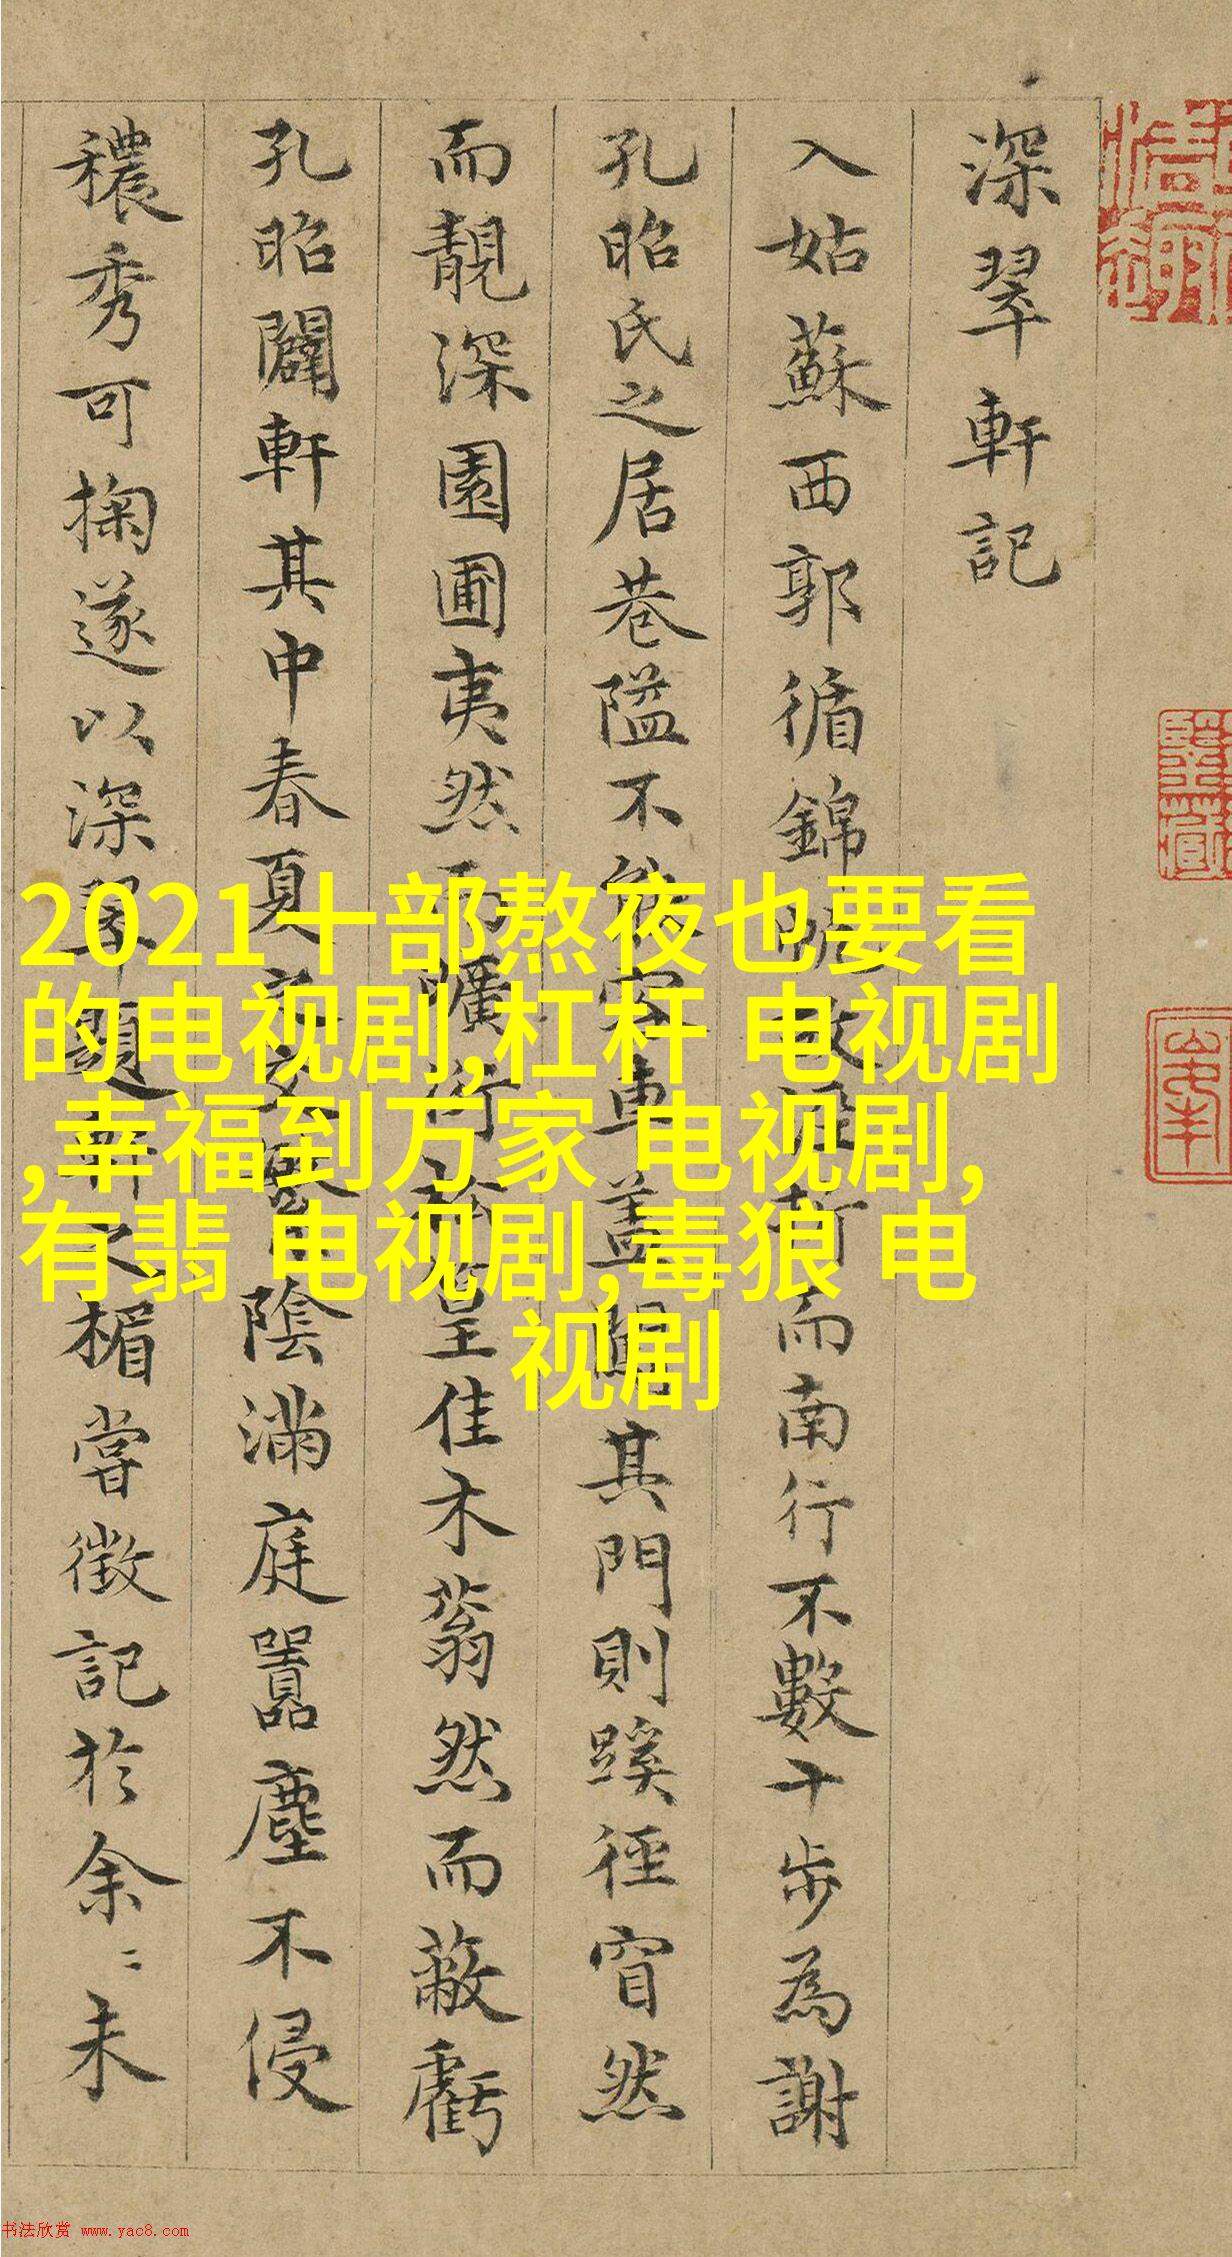 深翠軒記
入姑蘇西郭循錦帆 折而南行不數十步為謝
孔昭氏之居巷隘不能容車蓋 其門則蹊徑窅然
而靚深園圃夷然 曠 皇佳木蓊然而蔽虧
孔昭闢軒其中春夏之交 陰滿庭囂塵不侵
穠秀可掬遂以深翠題軒之楣嘗徵記於余〻未
2021十部熬夜也要看
的电视剧,杠杆 电视剧
,幸福到万家 电视剧,
有翡 电视剧,毒狼 电
视剧
书法欣赏 www.yac8.com